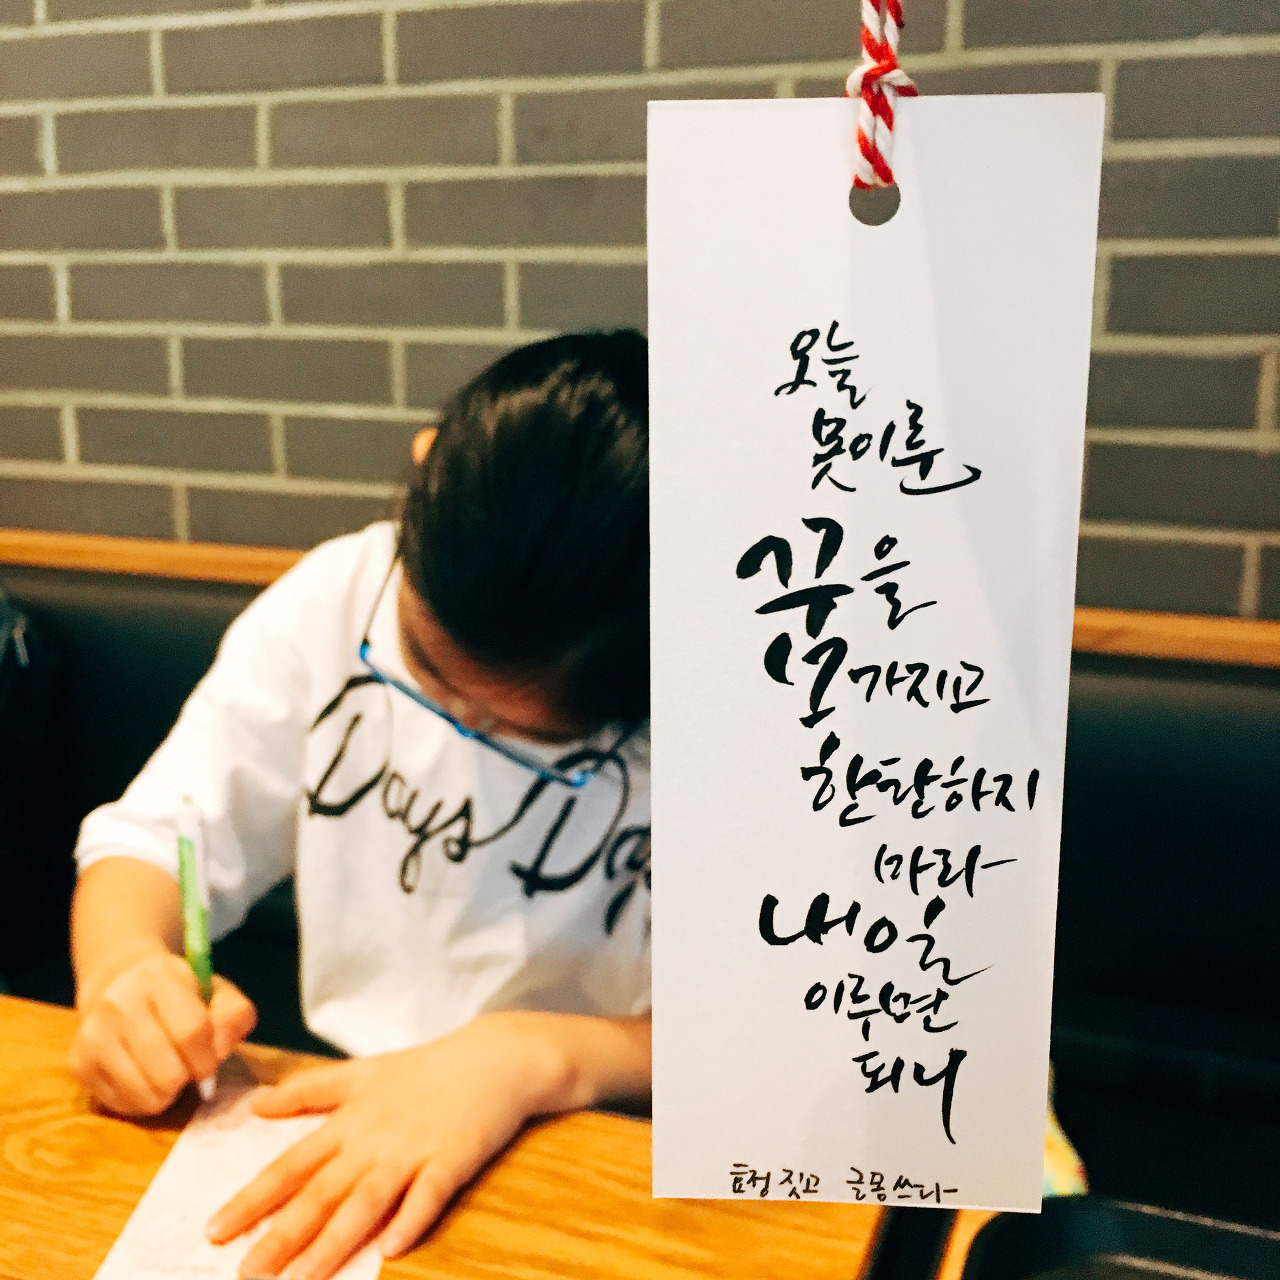 오늘
못이룬
꿈을
가지고
한탄하지
마라
내일
이루면
되니
효정 짓고 글몽 쓰다
Days Da